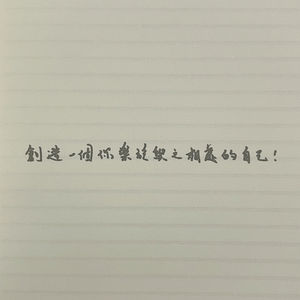 創造一個你樂於與之相處的自己!